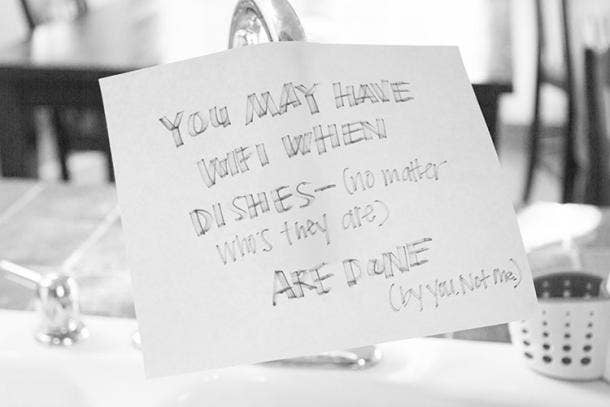 YOU MAY HAVE
WIFI WHEN
DISHES- (no matter
who's they are)
ARE DONE
(by you. Not me)